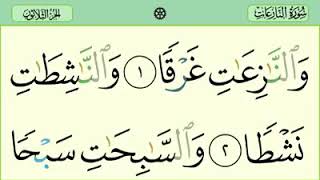 سُورَةُ النَّازِعَاتِ الجُزْءُ الثَّلَاثُونَ
وَٱلنَّٰزِعَٰتِ غَرۡقٗا ١ وَٱلنَّٰشِطَٰتِ
نَشۡطٗا ٢ وَٱلسَّٰبِحَٰتِ سَبۡحٗا